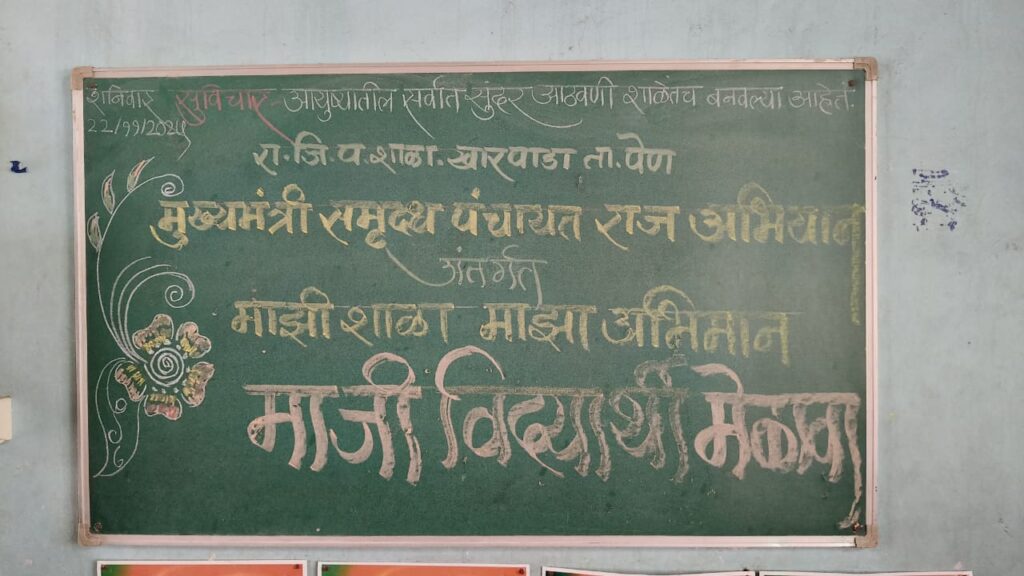 शनिवार सुविचार - आयुष्यातील सर्वात सुंदर आठवणी शाळेतच बनवल्या आहेत.
22/11/2025
रा.जि.प.शाळा.खारपाडा ता.पेण
मुख्यमंत्री समृध्द पंचायत राज अभियान
अंतर्गत
माझी शाळा माझा अभिमान
माजी विद्यार्थी मेळावा